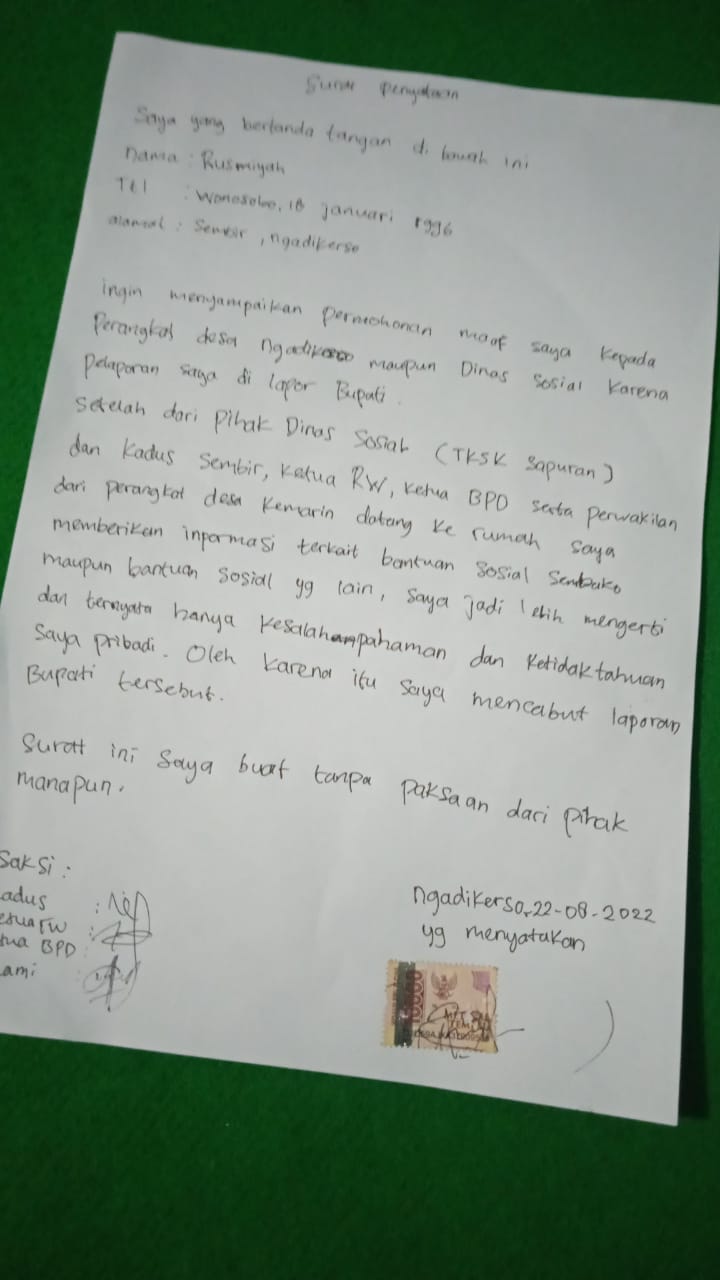 Surat Penyataan
Saya yang bertanda tangan di bawah ini
nama : Rusmiyah
Ttl : Wonosobo, 18 januari 1996
alamat : Sembir, ngadikerso
ingin menyampaikan permohonan maaf saya kepada
Perangkat desa ngadikerso maupun Dinas Sosial Karena
Pelaporan saya di lapor Bupati.
Setelah dari Pihak Dinas Sosial (TKSK Sapuran)
dan Kadus Sembir, Ketua RW, Ketua BPD serta perwakilan
dari perangkat desa Kemarin datang ke rumah saya
memberikan informasi terkait bantuan sosial Sembako
maupun bantuan sosial yg lain, saya jadi lebih mengerti
dan ternyata hanya Kesalahanpahaman dan Ketidaktahuan
Saya pribadi. Oleh karena itu saya mencabut laporan
Bupati tersebut.
Surat ini saya buat tanpa paksaan dari pihak
manapun.
Saksi :
adus :
etua rw :
tua BPD :
ami :
ngadikerso, 22-08-2022
yg menyatakan
10000